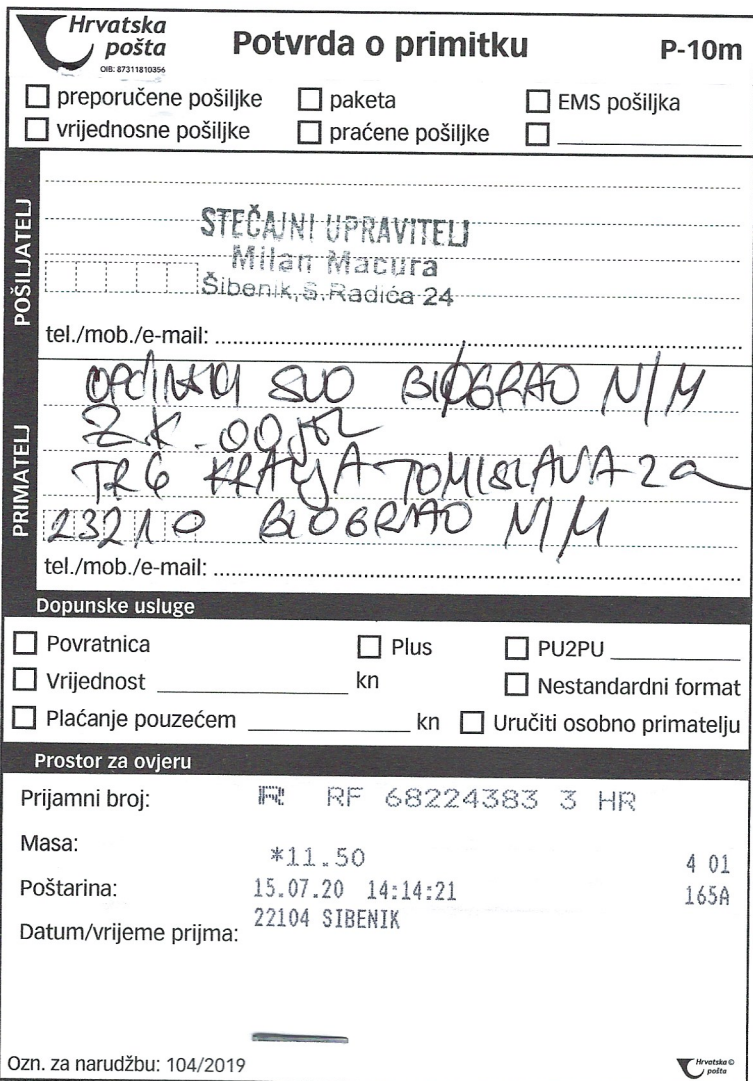 Hrvatska
pošta
OIB: 87311810356
Potvrda o primitku
P-10m
preporučene pošiljke
paketa
EMS pošiljka
vrijednosne pošiljke
praćene pošiljke
POŠILJATELJ
STEČAJNI UPRAVITELJ
Milan Macura
Šibenik, S. Radića 24
tel./mob./e-mail:
PRIMATELJ
OPĆINSKI SUD BIOGRAD N/M
Z.K. ODJEL
TRG KRALJA TOMISLAVA 2a
23210 BIOGRAD N/M
tel./mob./e-mail:
Dopunske usluge
Povratnica
Plus
PU2PU
Vrijednost kn
Nestandardni format
Plaćanje pouzećem kn
Uručiti osobno primatelju
Prostor za ovjeru
Prijamni broj: R RF 68224383 3 HR
Masa:
*11.50 4 01
Poštarina: 15.07.20 14:14:21 165A
Datum/vrijeme prijma: 22104 SIBENIK
Ozn. za narudžbu: 104/2019
Hrvatska ©
pošta